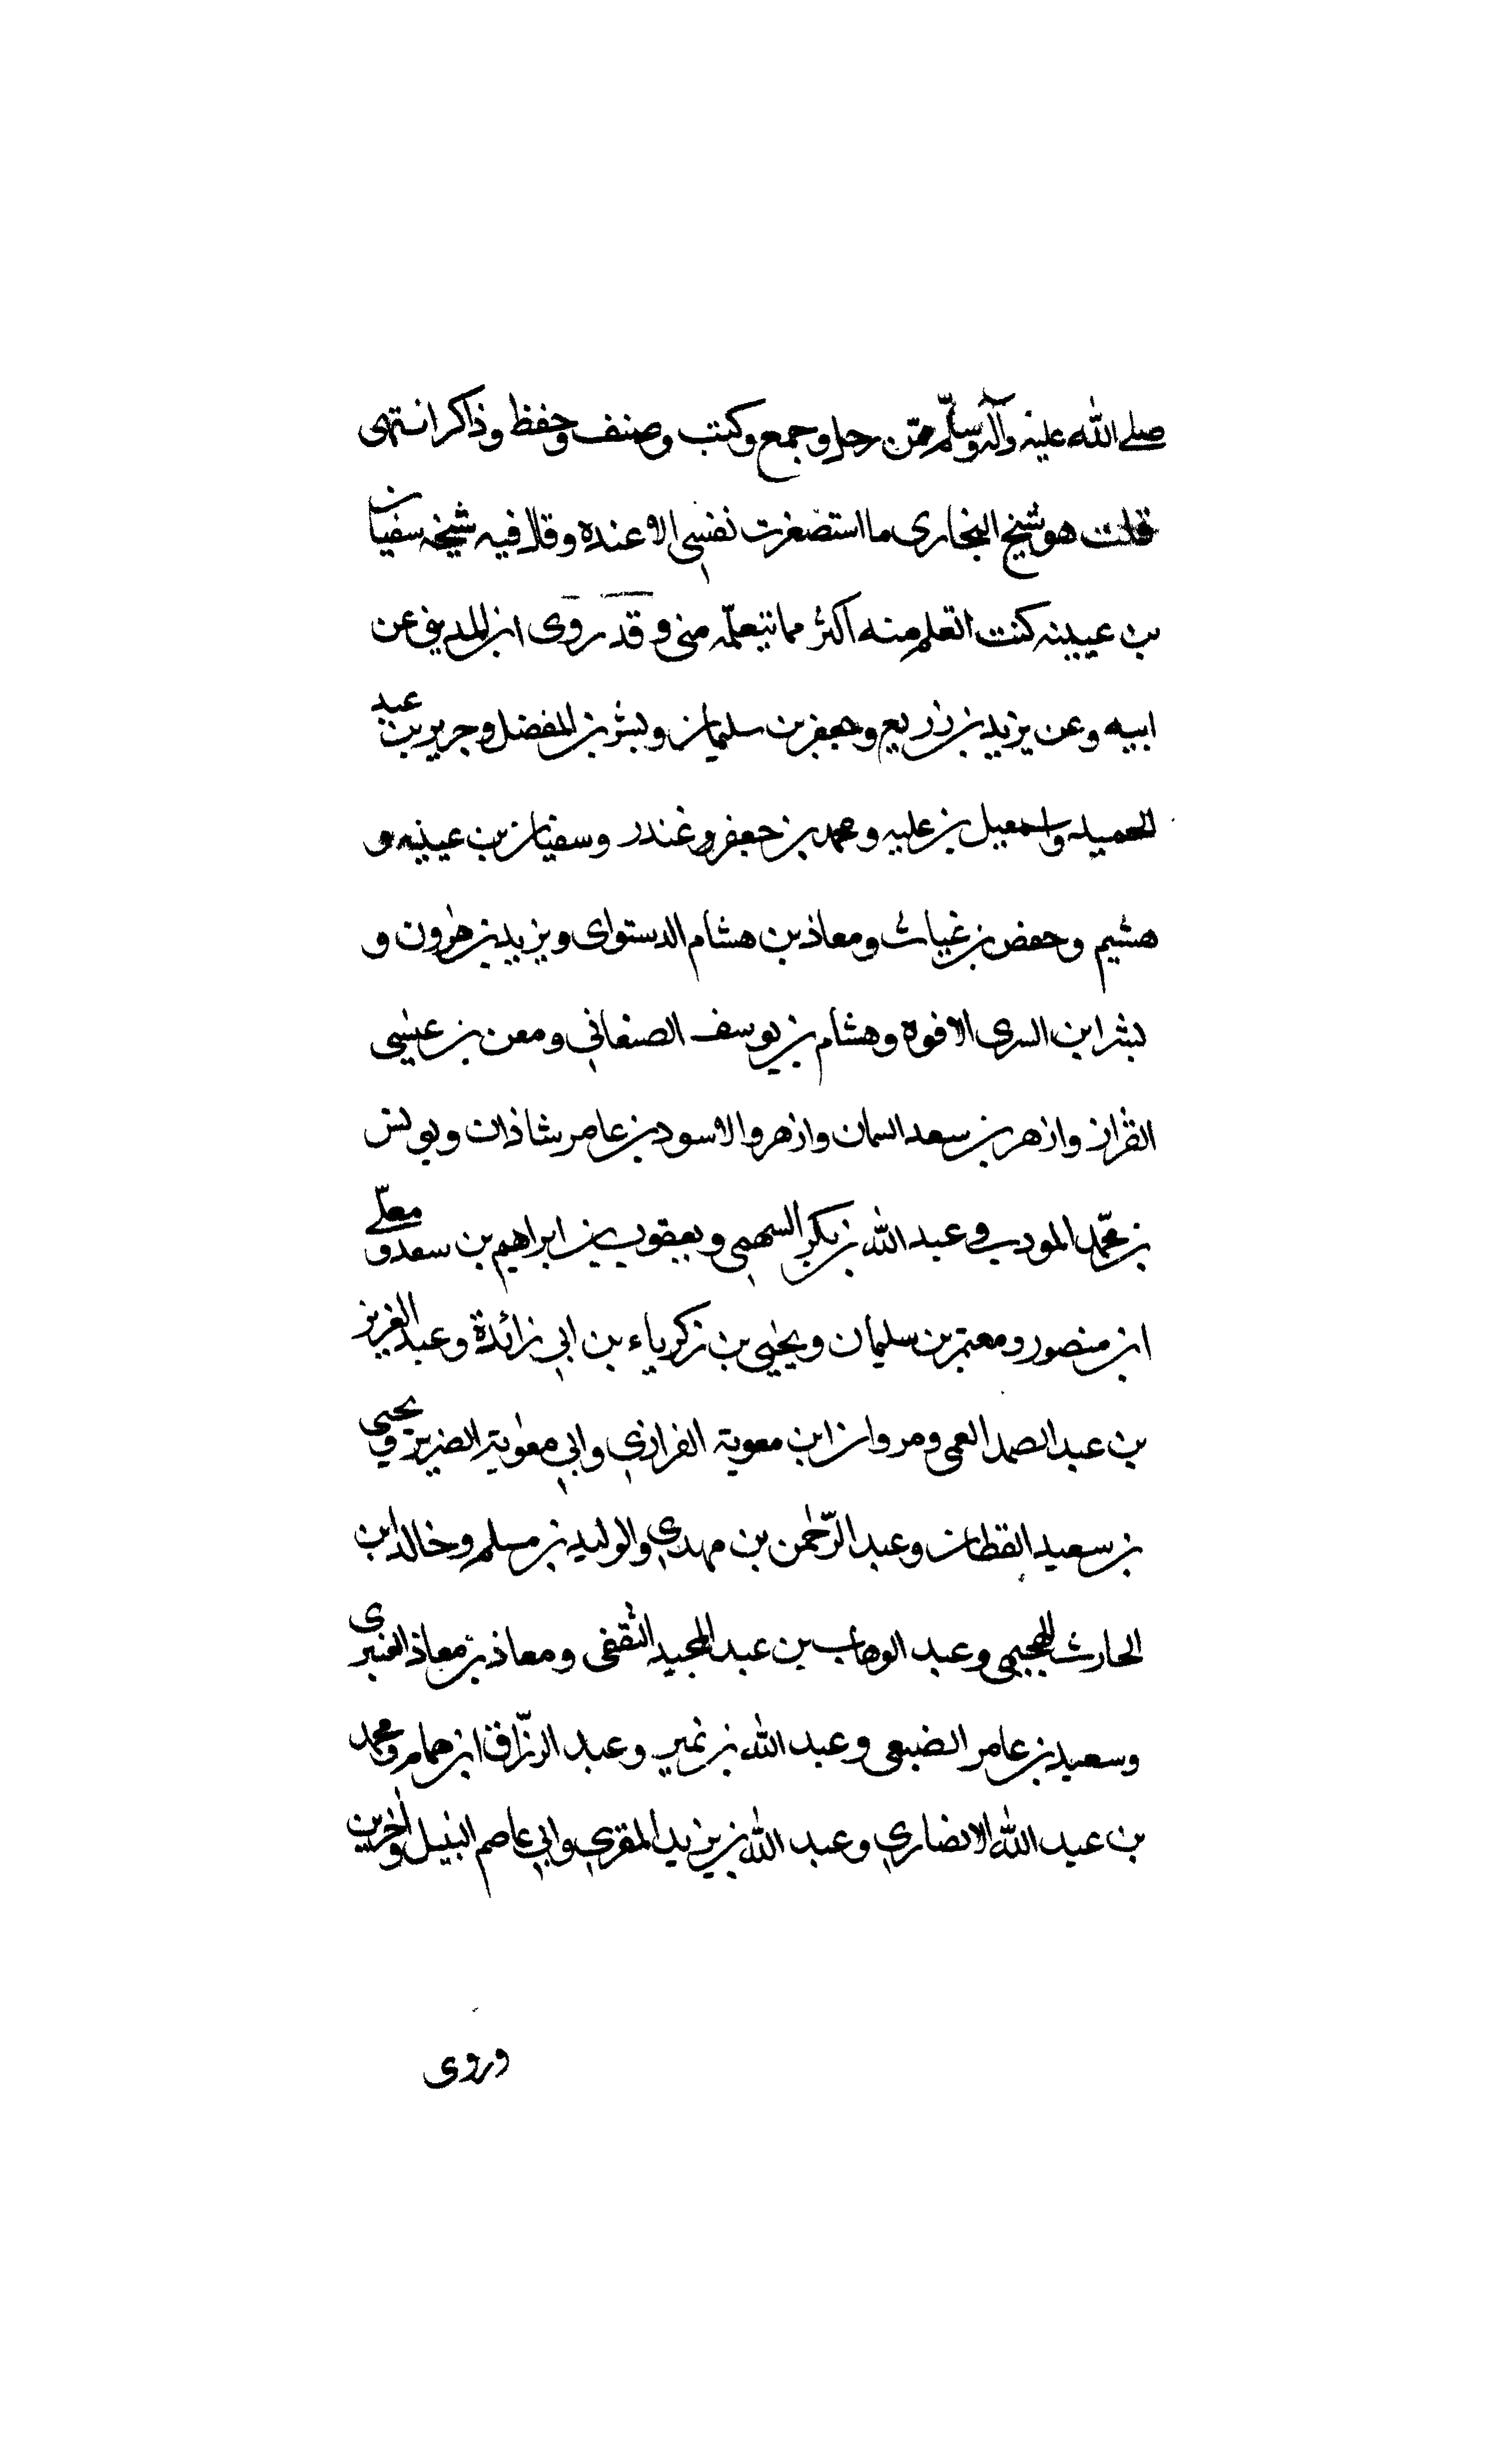 صلے الله عليه وآله وسلّم ممّن رحل وجمع وكتب وصنف وحفظ وذاكر انتهى
قلت هو شيخ البخارى ما استصغرت نفسى الا عنده وقال فيه شيخه سفيان
بن عيينه كنت اتعلم منه اكثر مما يتعلّمه منى وقد روى ابن المدينى عن
ابيه وعن يزيد بن زريع وجعفر بن سليمان وبشر بن المفضل وجرير بن عبد
الحميد واسمعيل بن عليه ومحمد بن جعفر وغندر وسفيان بن عيينه و
هشيم وحفص بن غياث ومعاذ بن هشام الدستواى ويزيد بن هٰرون و
بشر ابن السرى الافوه وهشام بن يوسف الصنعاني ومعن بن عيسى
القزاز وازهر بن سعد السمان وازهر والاسود بن عامر شاذان ويونس
بن محمّد المودب وعبد الله بن بكر السهمى ويعقوب بن ابراهيم بن سعد و معلّے
ابن منصور ومعتمر بن سليمان ويحيٰى بن زكرياء بن ابي زائدة وعبد العزيز
بن عبد الصمد العمى ومروان ابن معوية الفزاري وابي معٰوية الضرير ويحيى
بن سعيد القطان وعبد الرّحمٰن بن مهدي والوليد بن مسلم وخالد ابن
الحارث الهجيمى وعبد الوهاب بن عبد المجيد الثقفى ومعاذ بن معاذ العنبرى
وسعيد بن عامر الضبعى وعبد الله بن نمير وعبد الرزّاق ابن همام ومحمد
بن عبد الله الانصاري وعبد الله بن يزيد المقري وابي عاصم النبيل وآخرين
وروى